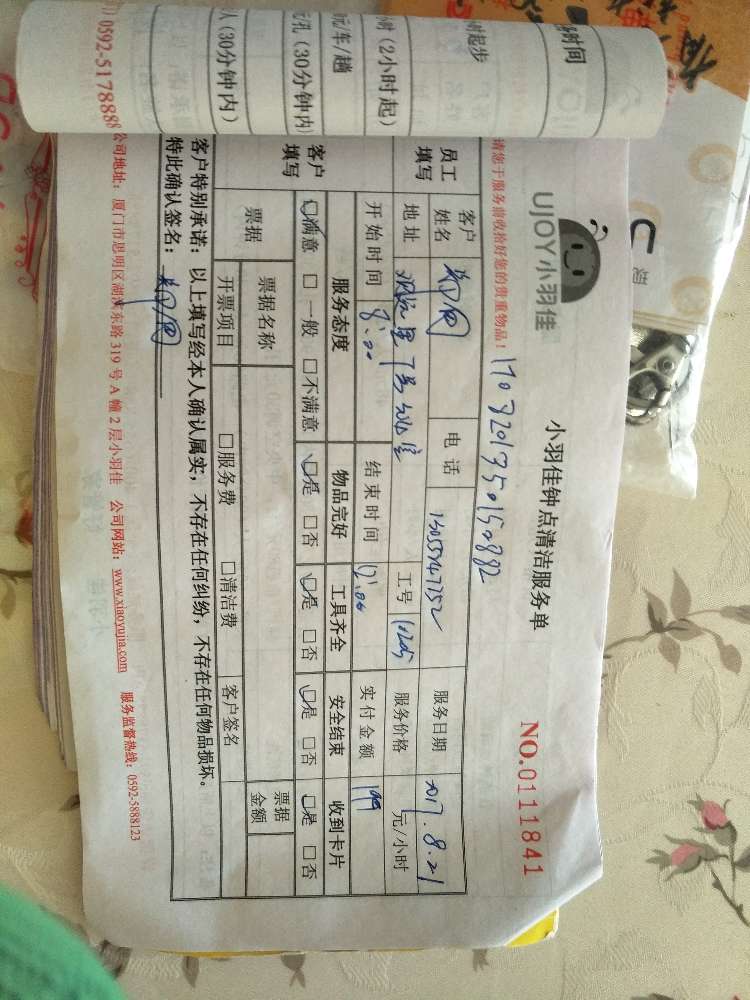 时间
时起步
小时(2小时起)
元/车/趟
元/孔(30分钟内)
人(30分钟内)
0592-5178888
UJOY小羽佳
小羽佳钟点清洁服务单
NO.0111841
请您于服务前收拾好您的贵重物品!
员工填写
客户姓名
电话
服务日期 2017.8.21
地址
工号
服务价格
元/小时
开始时间 8:00
结束时间 12:00
实付金额
客户填写
服务态度 物品完好 工具齐全 安全结束 收到卡片
☑满意 □一般 □不满意 ☑是 □否 ☑是 □否 ☑是 □否 ☑是 □否
票据 票据名称 票据金额
开票项目 □服务费 □清洁费 客户签名
客户特别承诺:以上填写经本人确认属实,不存在任何纠纷,不存在任何物品损坏。
特此确认签名:
公司地址:厦门市思明区湖滨东路319号A幢2层小羽佳 公司网站:www.xiaoyujia.com 服务监督热线:0592-5888123